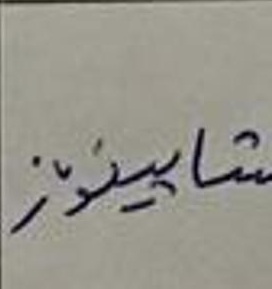 شاپینوز